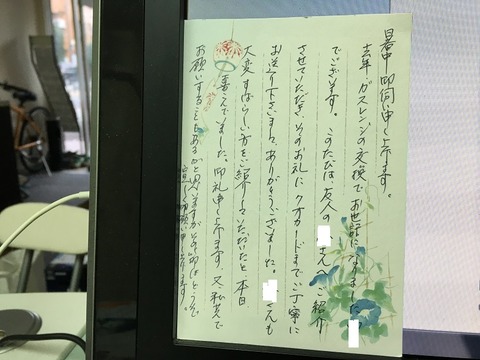 暑中御伺い申し上げます。
去年、ガスレンジの交換でお世話になりました
でございます。このたびは友人の さんへご紹介
させていただき、そのお礼にクオカードまでご丁寧に
お送り下さいましてありがとうございました。 さんも
大変すばらしい方をご紹介していただいたと、本日
見えてました。御礼申し上げます。又、私共で
お願いすることもあるかと思いますがその節はどうぞ
宜しく御願い申し上げます。